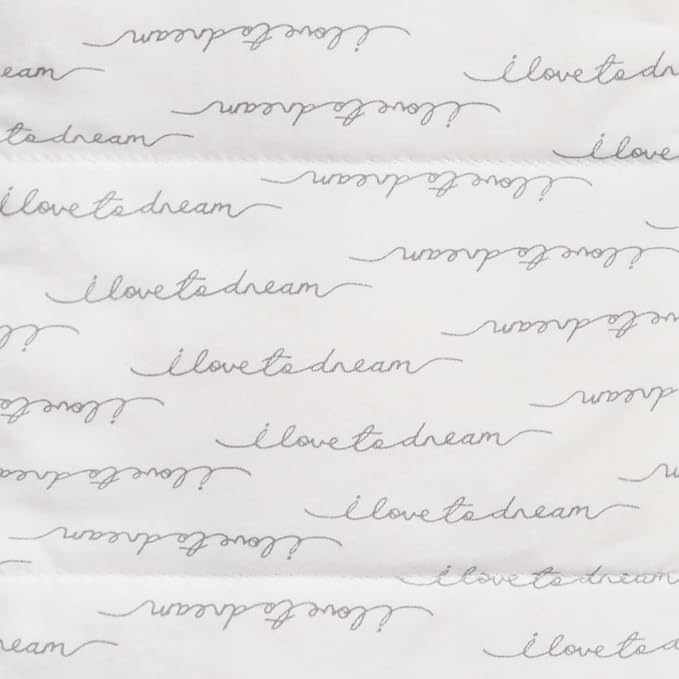 i love to dream
eam
i love to dr
i love to dream
to dream
i love
i love to dream
i love to dream
i love to dream
i love to dream
i love to dream
i
i love to dream
dream
i love to
i love to dream
i love to dream
i love to dream
i love to dream
i love to dream
i love to dream
eam
i love to d